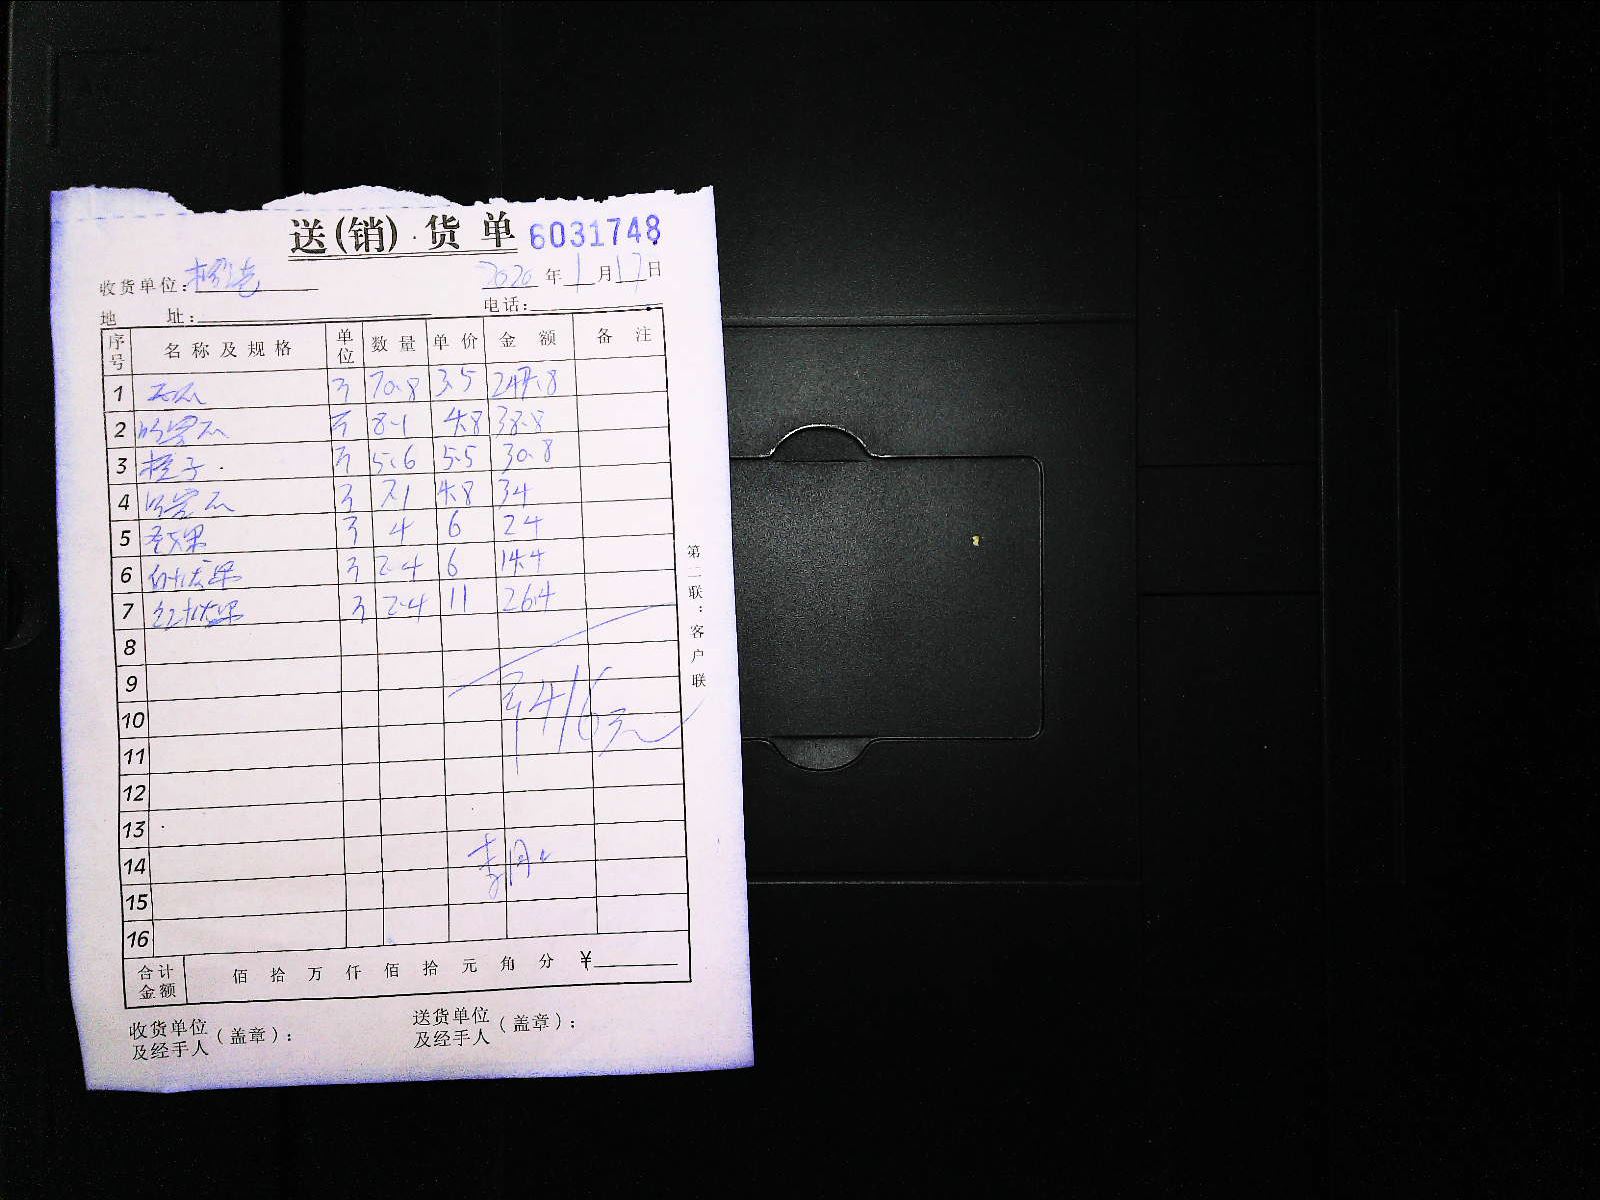 送(销)货单 6031748
收货单位: 2020年1月17日
地 址: 电话:
序号 名称及规格 单位 数量 单价 金额 备注
1 西瓜 斤 70.8 3.5 247.8
2 哈密瓜 斤 8.1 4.8 38.8
3 橙子 斤 5.6 5.5 30.8
4 哈密瓜 斤 7.1 4.8 34
5 圣女果 斤 4 6 24
6 白火龙果 斤 2.4 6 14.4
7 红火龙果 斤 2.4 11 26.4
8
9
10 416元
11
12
13
14
15
16
合计金额 佰 拾 万 仟 佰 拾 元 角 分 ¥
收货单位及经手人(盖章): 送货单位及经手人(盖章):
第二联:客户联